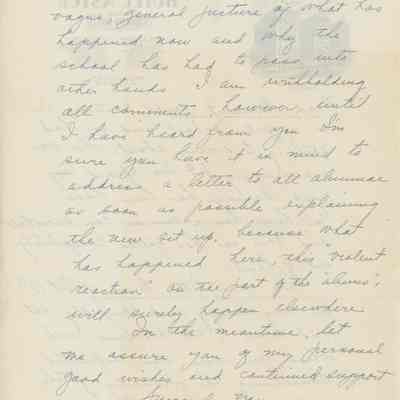 vague, general picture of what has
happened now and why the
school has had to pass into
other hands I am withholding
all comments, however, until
I have heard from you I'm
sure you have it in mind to
address a letter to all alumnae
as soon as possible explaining
the new set up, because what
has happened here, this "violent
reaction" on the part of the "alums",
will surely happen elsewhere
In the meantime, let
me assure you of my personal
good wishes and continued support